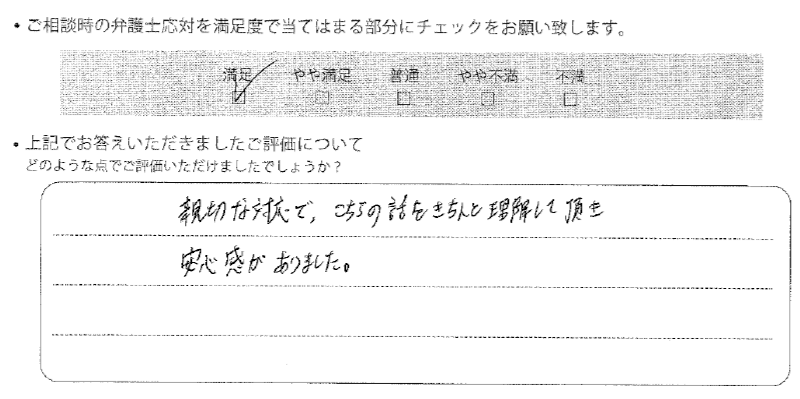 ・ご相談時の弁護士応対を満足度で当てはまる部分にチェックをお願い致します。
満足 やや満足 普通 やや不満 不満
・上記でお答えいただきましたご評価について
どのような点でご評価いただけましたでしょうか？
親切な対応で、こちらの話をきちんと理解して頂き
安心感がありました。